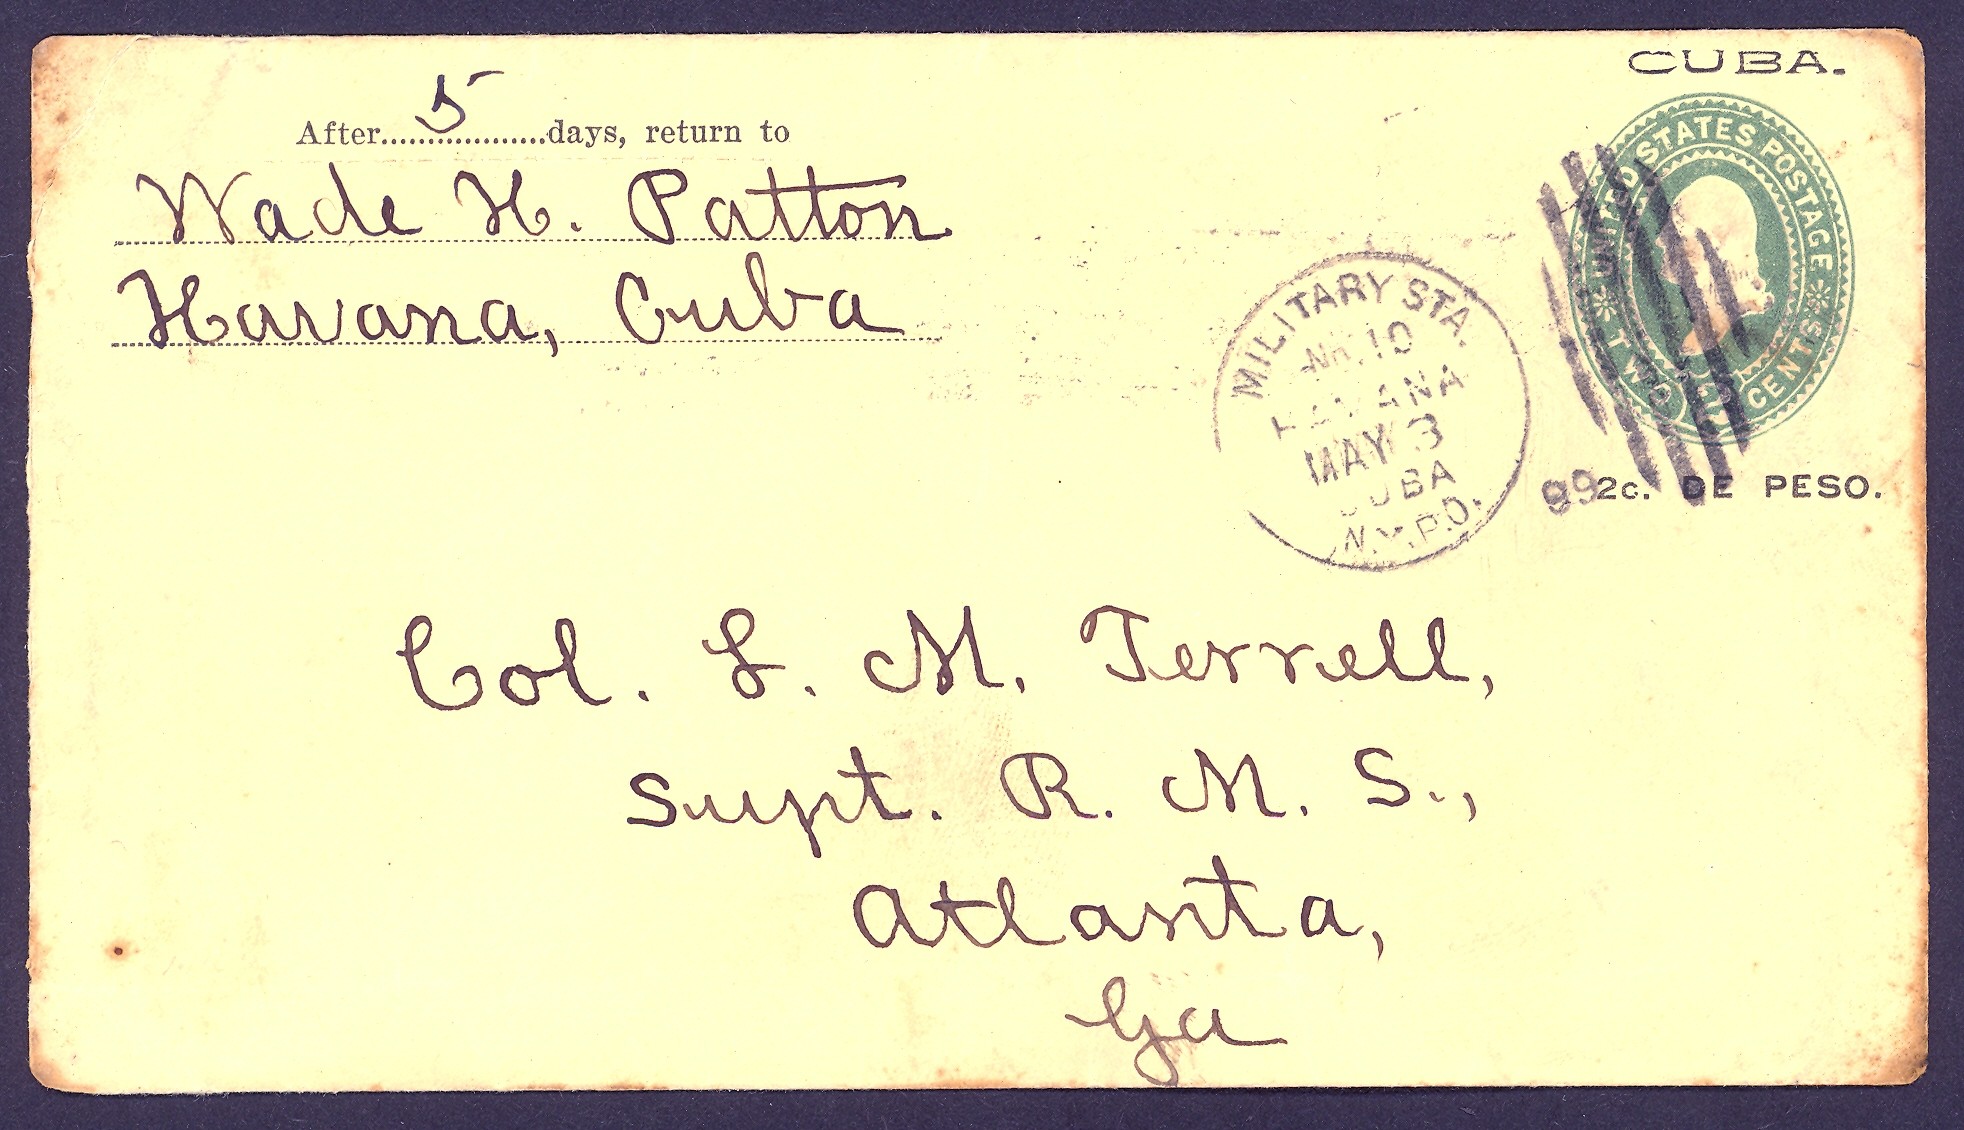 CUBA.
After 5 days, return to
Wade H. Patton
Havana, Cuba
UNITED STATES POSTAGE
TWO CENTS
MILITARY STA.
No. 10
HAVANA
MAY 3
CUBA
N.Y.P.O.
99
2c. DE PESO.
Col. L. M. Terrell,
Supt. R. M. S.,
Atlanta,
Ga